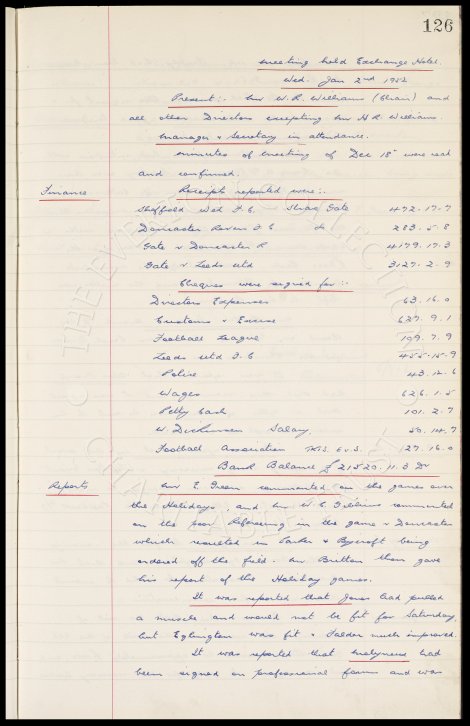 126
meeting held Exchange Hotel.
Wed. Jan 2nd 1952
Present:. Mr W. R. Williams (Chair) and
all other Directors excepting Mr H R. Williams.
Manager & Secretary in attendance.
Minutes of meeting of Dec 18th were read
and confirmed.
Finance
Receipts reported were:.
Sheffield Wed F.C. Share Gate 472.17.7
Doncaster Rovers F.C. do 283.5.8
Gate v Doncaster R 4179.17.3
Gate v. Leeds Utd 3127.2.9
Cheques were signed for:.
Directors Expenses 63.16.0
Customs & Excise 627.9.1
Football League 199.7.9
Leeds Utd F.C 455.15.9
Police 43.12.6
Wages 626.1.5
Petty Cash 101.2.7
W Dickinson Salary 50.14.7
Football Association 27.16.0
Bank Balance £21520.11.3 Dr
Reports
Mr E. Green commented on the games over
the Holidays, and Mr W. C. Gibbins commented
on the poor Refereeing in the game v Doncaster
which resulted in Parker & Rycroft being
ordered off the field. Mr Britton then gave
his report of the Holiday games.
It was reported that Jones had pulled
a muscle and would not be fit for Saturday,
but Eglington was fit & Falder much improved.
It was reported that Molyneux had
been signed on professional forms and was
THE EVERTON COLLECTION
CHARITABLE TRUST